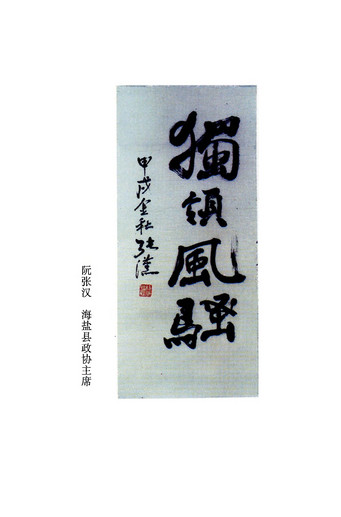 獨領風騷
甲戌金秋张漢
阮张汉 海盐县政协主席